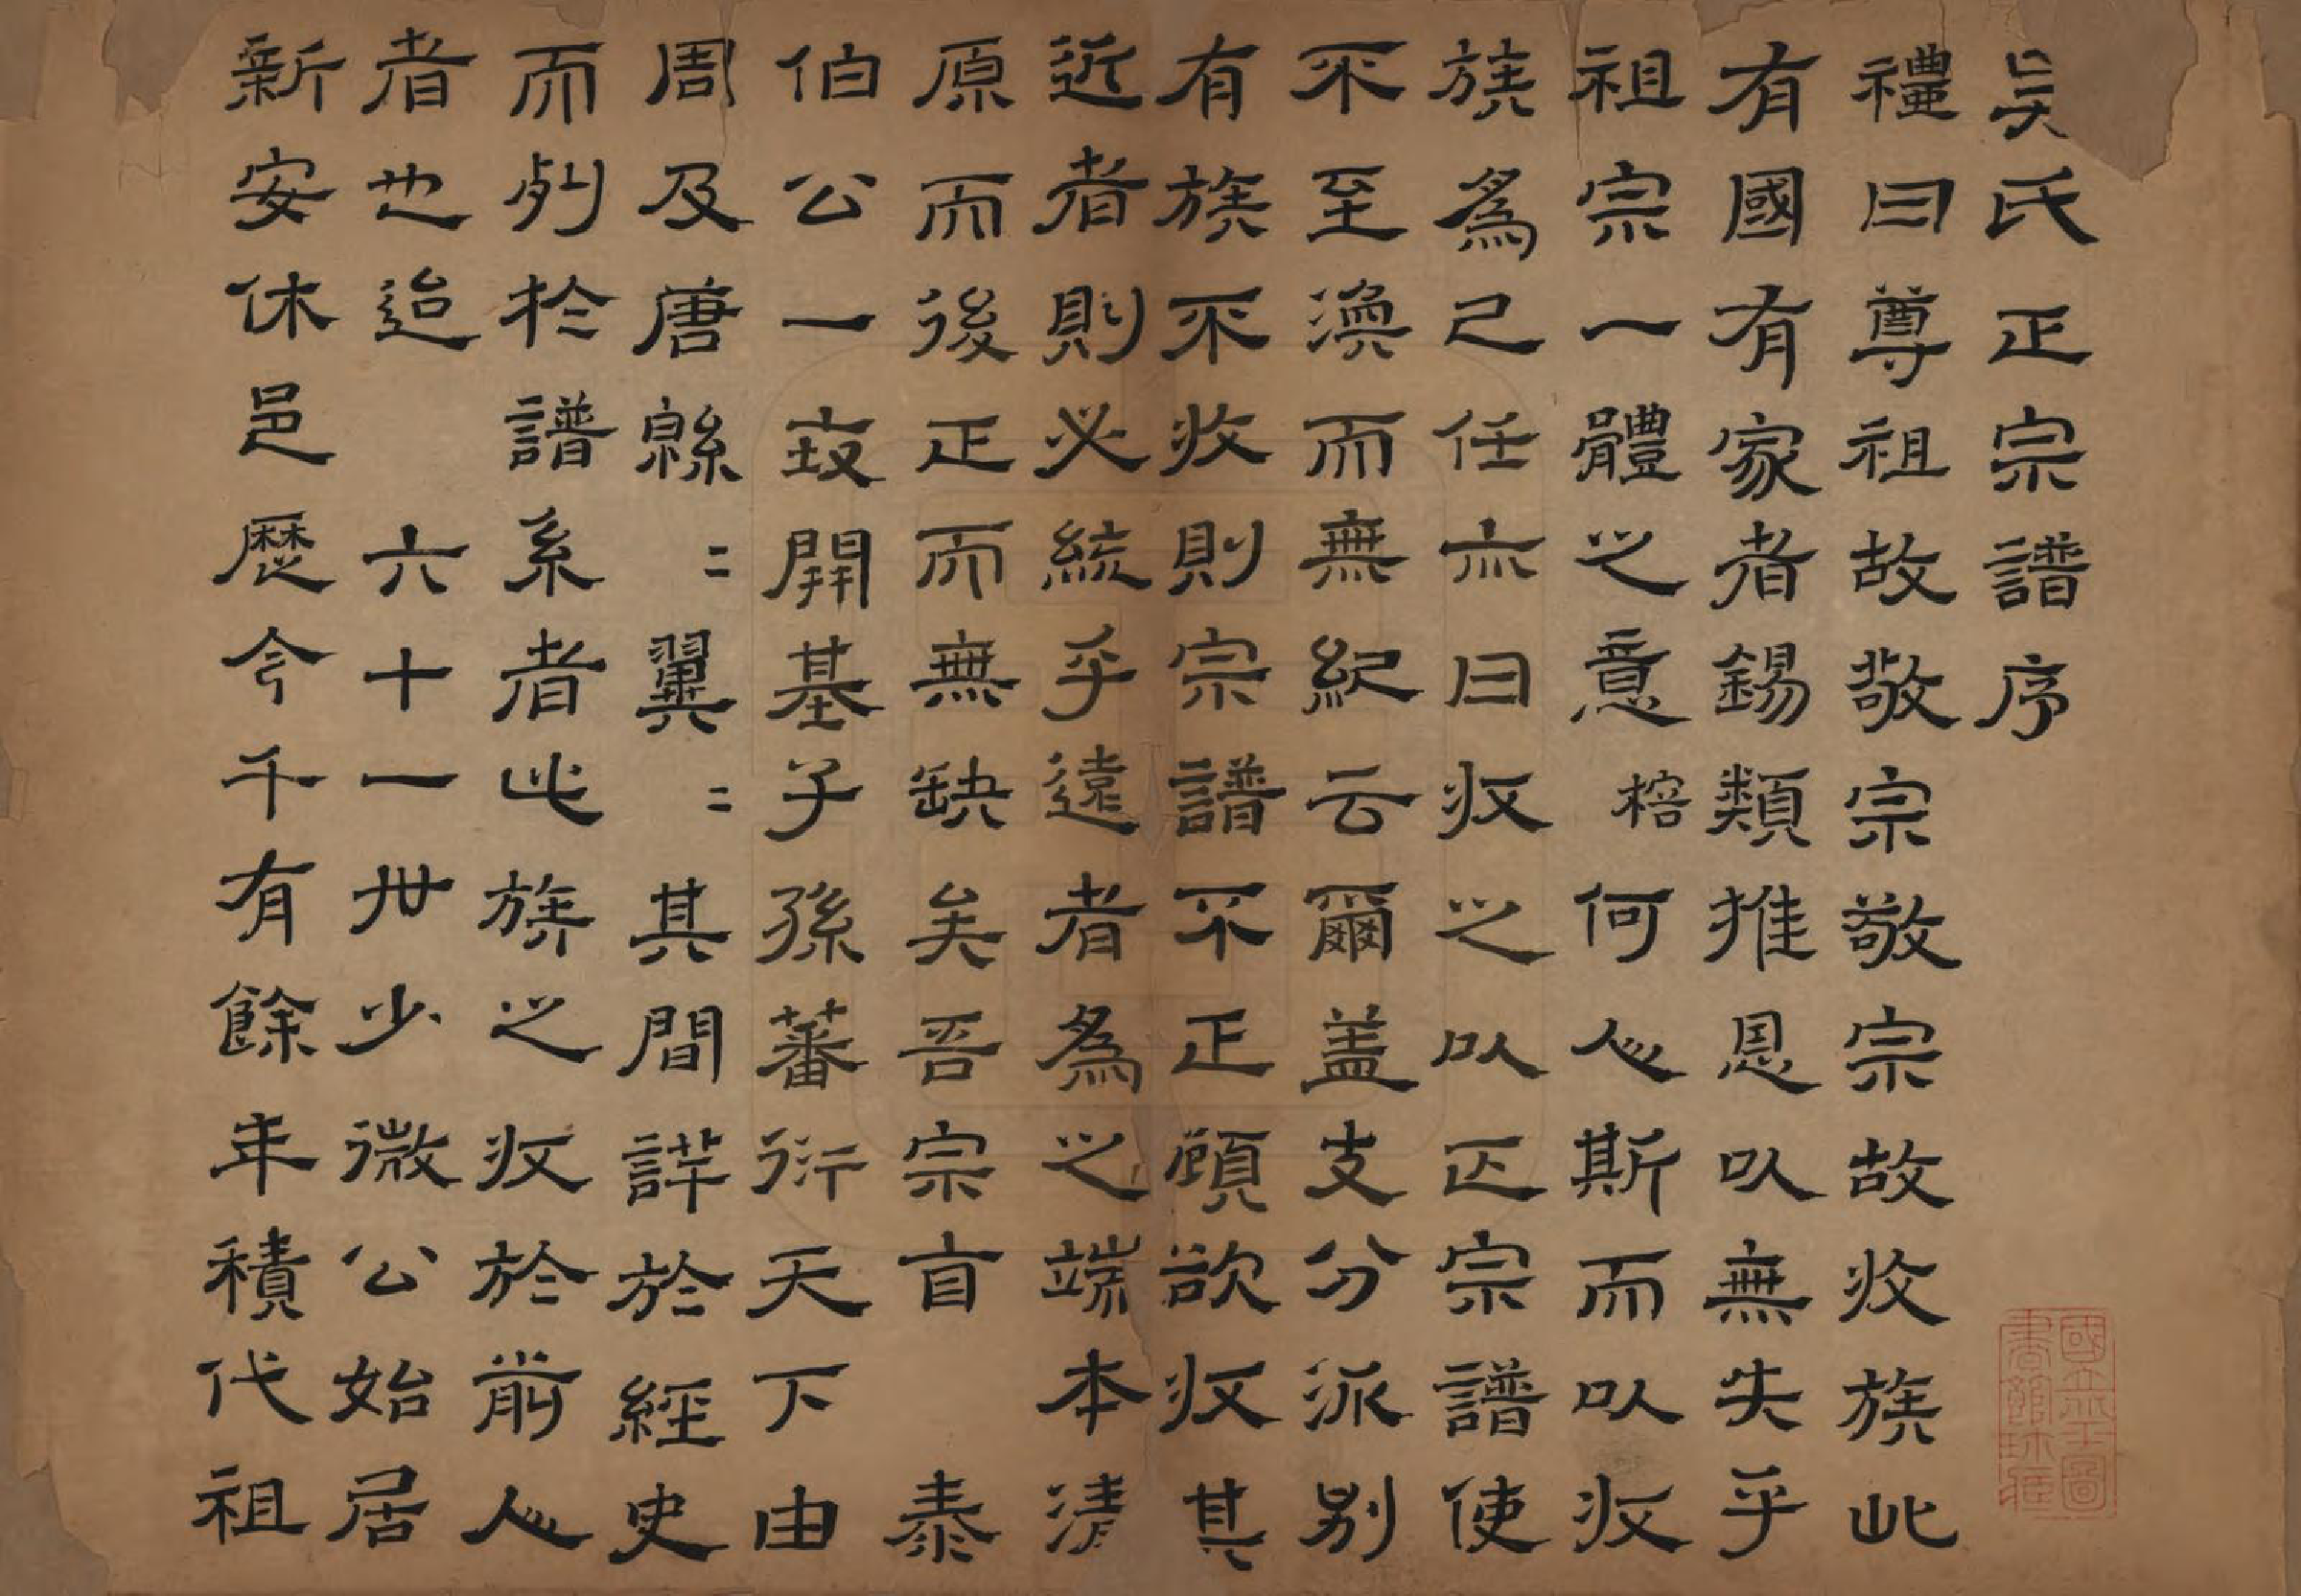 吳氏正宗譜序
禮曰尊祖故敬宗敬宗故收族此
有國有家者錫類推恩以無失乎
祖宗一體之意榕何人斯而以收
族為己任亦曰收之以正宗譜使
不至渙而無紀云爾蓋支分派別
有族不收則宗譜不正顧欲收其
近者則必統乎遠者為之端本清
原而後正而無缺矣吾宗首 泰
伯公一開基子孫蕃衍天下由
周及唐緜〻翼〻其間詳於經史
而列於譜系者此族之收於前人
者也迨 六十一世少微公始居
新安休邑歷今千有餘年積代祖
國立北平圖
書館珍藏